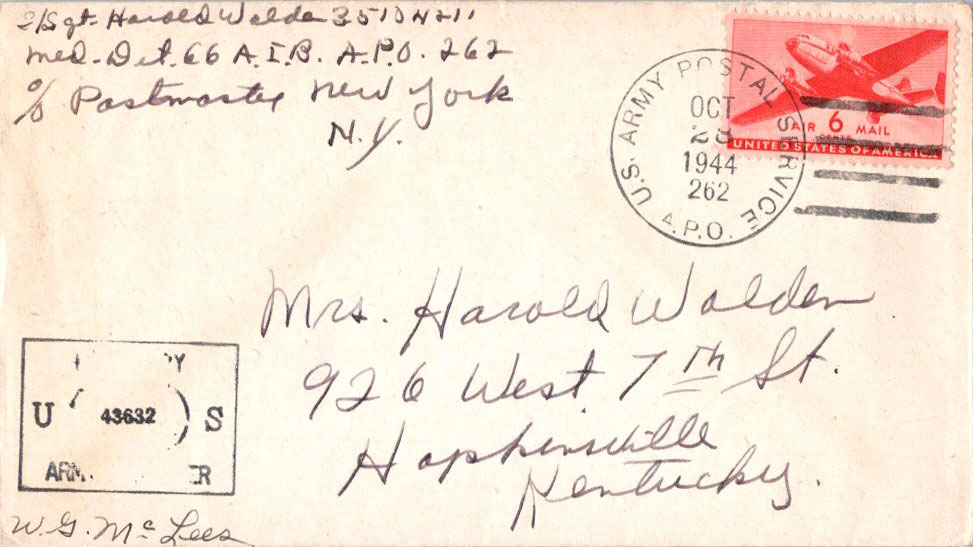 S/Sgt. Harold Walden 35104211
Med. Det. 66 A.I.B. A.P.O. 262
c/o Postmaster New York
N.Y.
U.S. ARMY POSTAL SERVICE
OCT
28
1944
262
A.P.O.
AIR 6 MAIL
CENTS
UNITED STATES OF AMERICA
Mrs. Harold Walden
926 West 7th St.
Hopkinsville
Kentucky.
U 43632 S
W.G. McLees